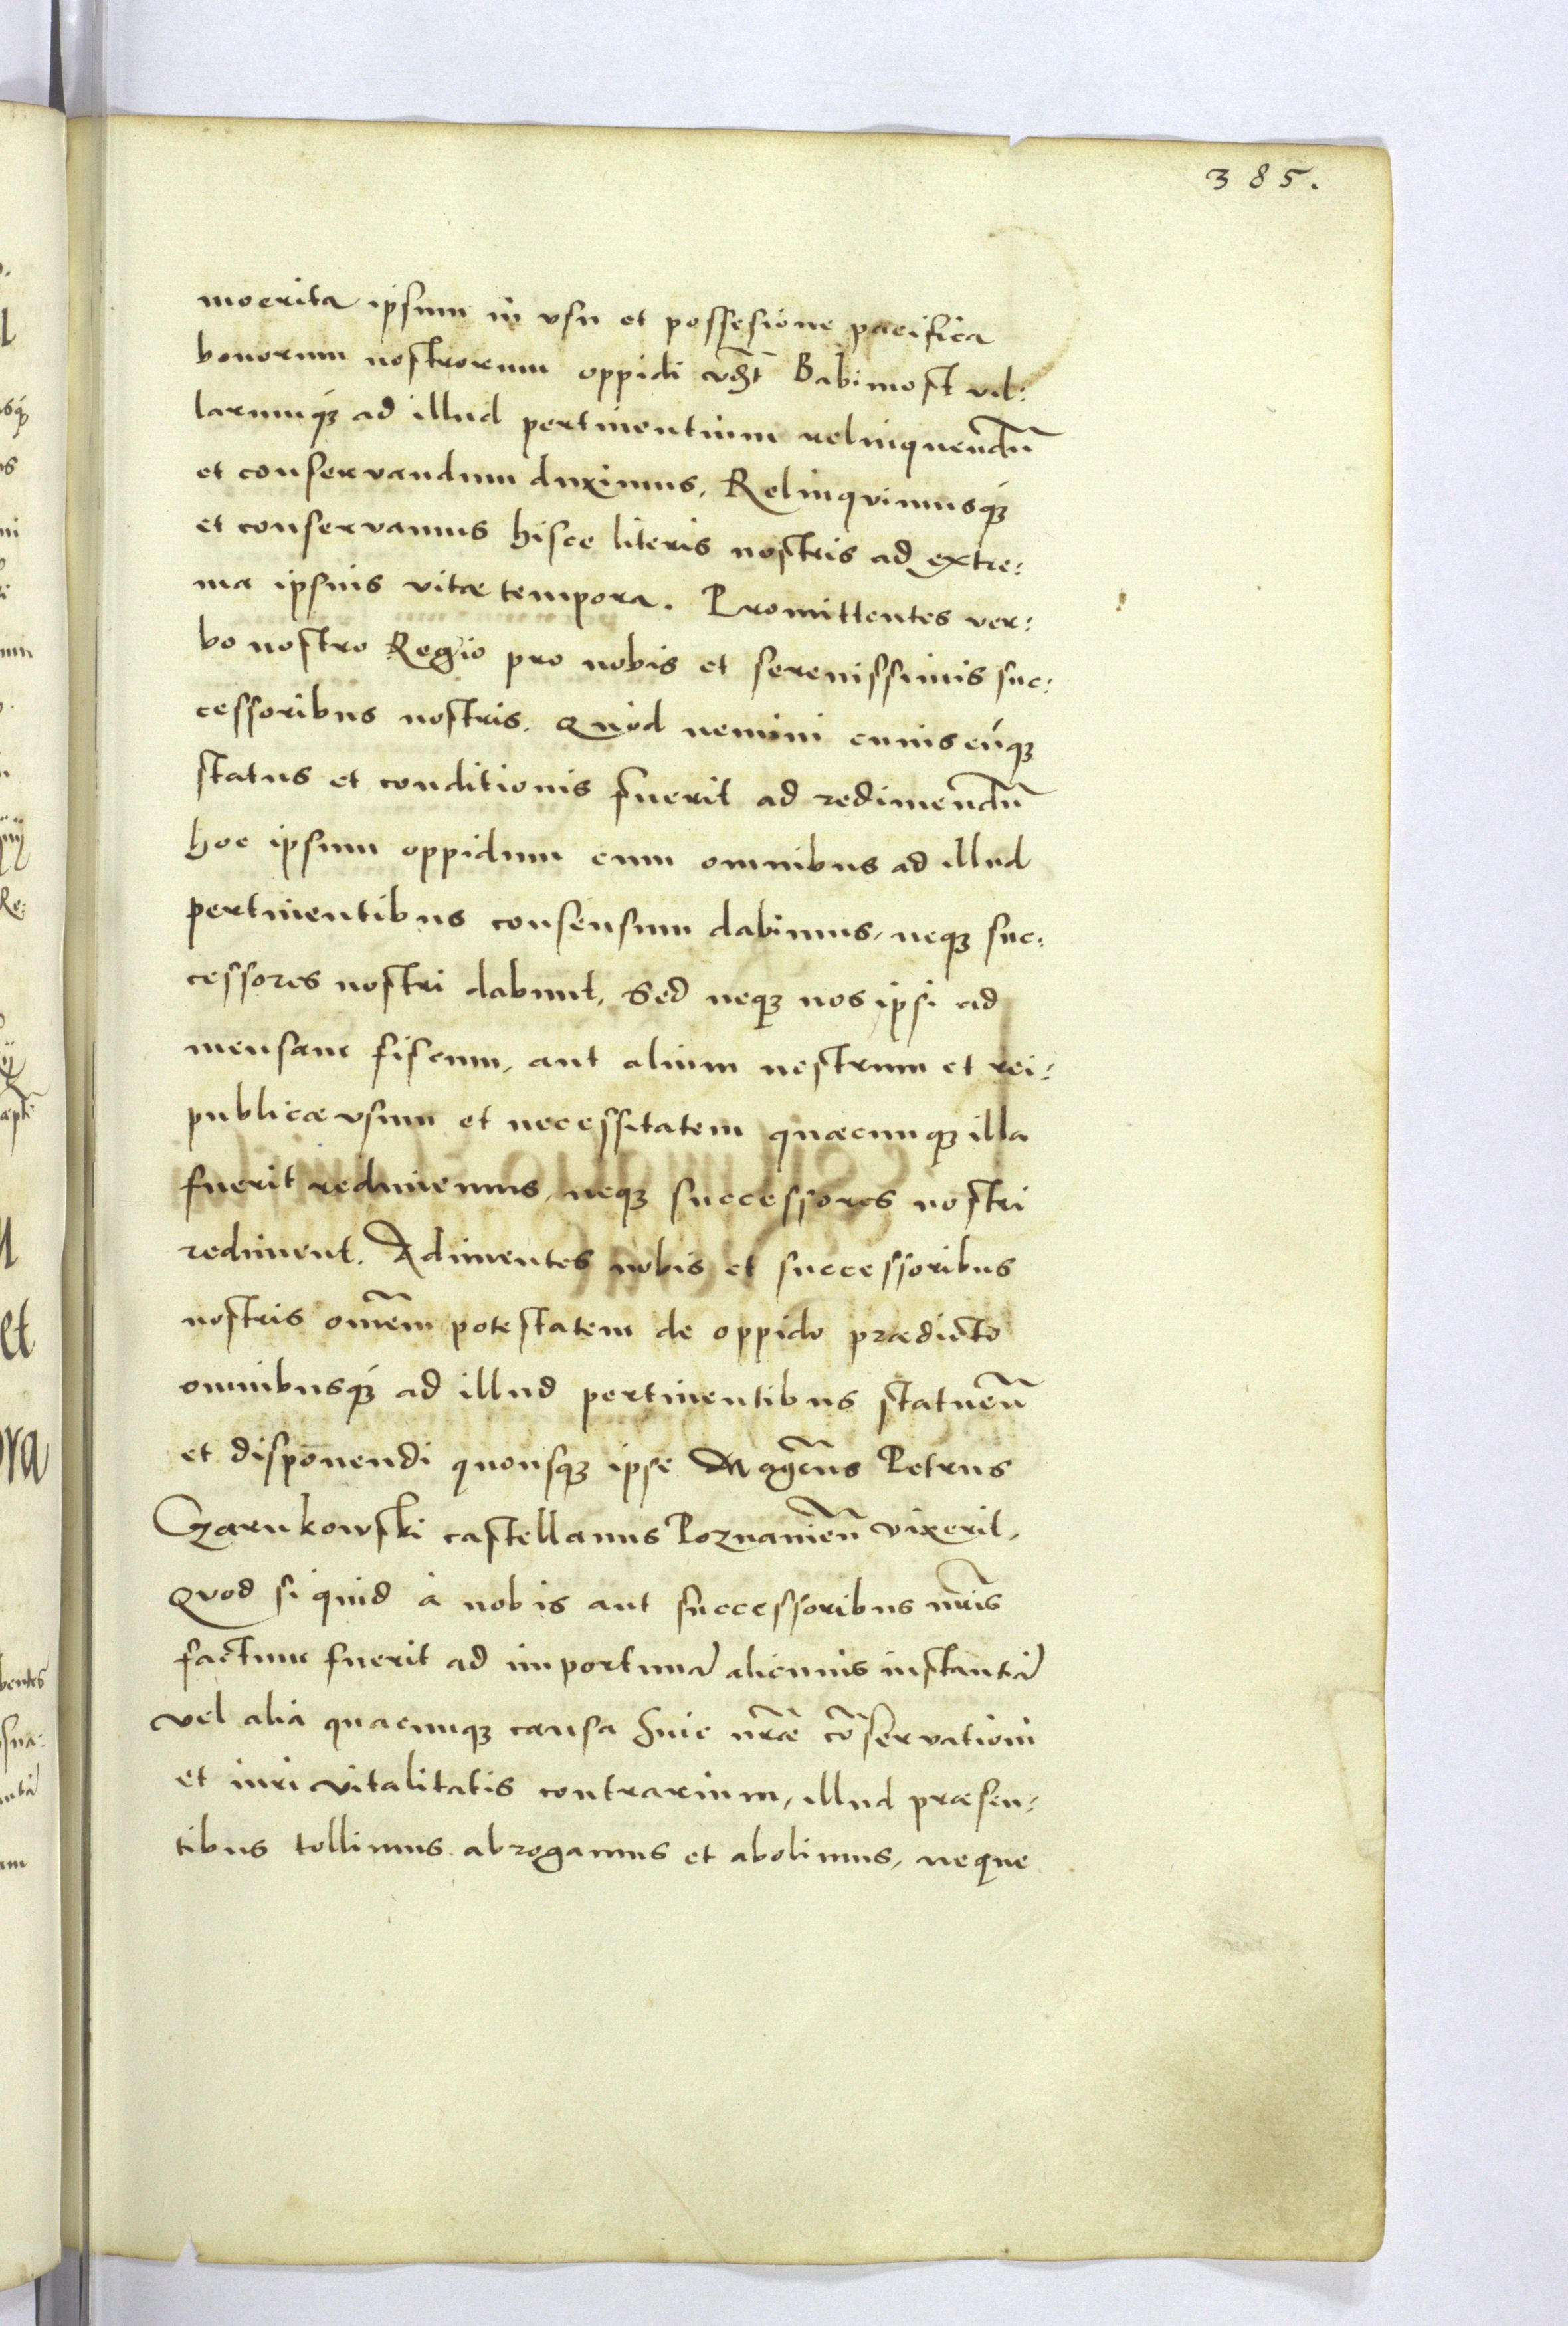 385.
moerita ipsum in vsu et possesione pacifica
bonorum nostrorum oppidi vdt̃ Babimost vil:
larumq́ꝫ ad illud pertinentium relinquendũ
et conservandum duximus, Relinqvimusq́ꝫ
et conservamus hisce literis nostris ad extre:
ma ipsius vitæ tempora. Promittentes ver:
bo nostro Regio pro nobis et serenissimis suc:
cessoribus nostris. Quod nemini cuiuscúqꝫ
status et conditionis fuerit ad redimendũ
hoc ipsum oppidum cum omnibus ad illud
pertinentibus consensum dabimus, neqꝫ suc:
cessores nostri dabunt, Sed neqꝫ nos ipsi ad
mensam fiscum, aut alium nostrum et rei:
publicæ vsum et necessitatem quæcunqꝫ illa
fuerit redimemus, neqꝫ successores nostri
rediment. Adimentes nobis et successoribus
nostris omẽm potestatem de oppido prædicto
omnibusq́ꝫ ad illud pertinentibus statuen̄
et disponendi quousqꝫ ipse Magc̃us Petrus
Czarnkowski castellanus Poznanien̄ vixerit,
Quod si quid à nobis aut successoribus nr̃is
factum fuerit ad importunã alicuius instantiã
vel alia quacunqꝫ causa huic nr̃æ cõservationi
et iuri vitalitatis contrarium, illud præsen:
tibus tollimus abrogamus et abolimus, neque